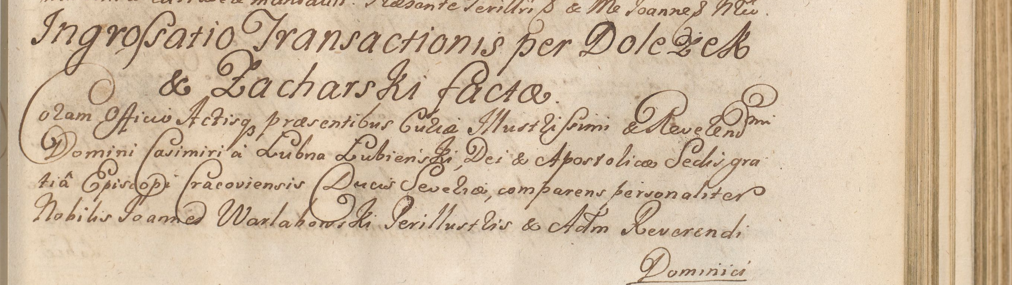 Præsente Perillri & Me Joanne
Ingrossatio Transactionis per Dolezek
& Zacharski factæ.
Coram Officio Actisq præsentibus Curiæ Illustrissimi & Reverendmi
Domini Casimiri à Lubna Lubienski, Dei & Apostolicæ Sedis gra
tiâ Episcopi Cracoviensis Ducis Severiæ, comparens personaliter
Nobilis Joannes Warlahowski Perillustris & Adm Reverendi
Dominici